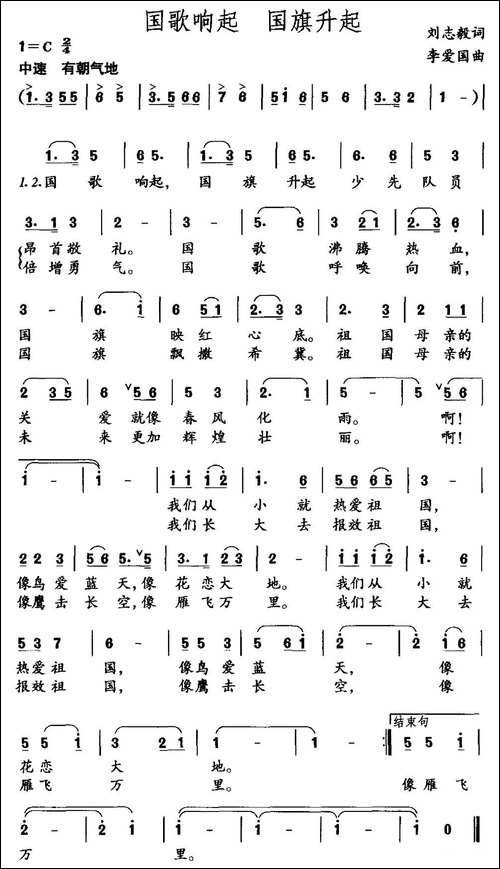 国歌响起 国旗升起
1=C 2/4
刘志毅词
中速 有朝气地
李爱国曲
(1. 3 5 5 | 6 5 | 3. 5 6 6 | 7 6 | 5 i 6 1 | 5 6 | 3. 3 3 2 | 1 -)|
1. 3 5 | 6 5. | 1. 3 5 | 6 5. | 6. 6 | 5 3 |
1.2.国 歌 响起, 国 旗 升起 少 先 队 员
3. 1 3 | 2 - | 3 - | 5. 6 | 3 2 1 | 2. 3 6 |
昂 首敬 礼。 国 歌 沸 腾 热 血,
倍 增勇 气。 国 歌 呼 唤 向 前,
3 - | 6. i | 6 5 1 | 2. 3 3 | 2. 3 | 2 1 1 |
国 旗 映 红 心 底。 祖 国 母 亲的
国 旗 飘 撒 希 冀。 祖 国 母 亲的
2 3 5 | 6 ∨5 6 | 5 5 3 | 2. 1 | 5 - | 5 ∨5 6 |
关 爱 就像 春 风 化 雨。 啊!
未 来 更加 辉 煌 壮 丽。 啊!
i - | i - | i i i 2 | i. 6 | 5 6 6 5 | 3 - |
我们从 小 就 热爱祖 国,
我们长 大 去 报效祖 国,
2 2 3 | 5 6 5. ∨5 | 3. 1 2 3 | 2 - | i i i 2 | i. 6 |
像鸟 爱 蓝 天,像 花 恋大 地。 我们从 小 就
像鹰 击 长 空,像 雁 飞万 里。 我们长 大 去
5 3 7 | 6 - | 5 5 3 | 5 6 1 | 6 - | 6. 5 |
热爱祖 国, 像鸟 爱 蓝 天, 像
报效祖 国, 像鹰 击 长 空, 像
结束句
5 5 i | 3 2 1 | 1 - | 1 - :| 5 5 i |
花恋 大 地。
雁飞 万 里。 像雁 飞
2 - | 2 i | i - | i - | i - | i 0 ‖
万 里。